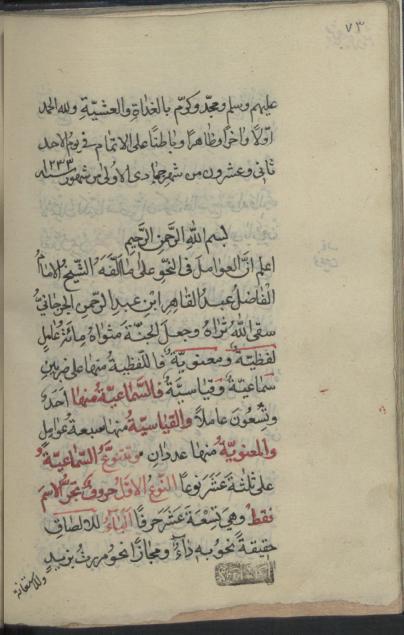 ٧٣
عليهم وسلم ومجد وكرم بالغداة والعشية ولله الحمد
اولا واخرا وظاهرا وباطنا على الاتمام في يوم الاحد
ثاني وعشرون من شهر جمادى الاولى من شهور سنه ١٢٣٣
بسم الله الرحمن الرحيم
اعلم ان العوامل في النحو على ما الفه الشيخ الامام
الفاضل عبد القاهر ابن عبد الرحمن الجرجاني
سقى الله ثراه وجعل الجنة مثواه مائة عامل
لفظية ومعنوية فاللفظية منها على ضربين
سماعية وقياسية فالسماعية منها احد
وتسعون عاملا والقياسية منها سبعة عوامل
والمعنوية منها عددان وتتنوع السماعية
على ثلثة عشر نوعا النوع الاول حروف تجر الاسم
فقط وهي تسعة عشر حرفا الباء للالصاق
حقيقة نحو به داء ومجازا نحو مررت بزيد
وللاستعانة